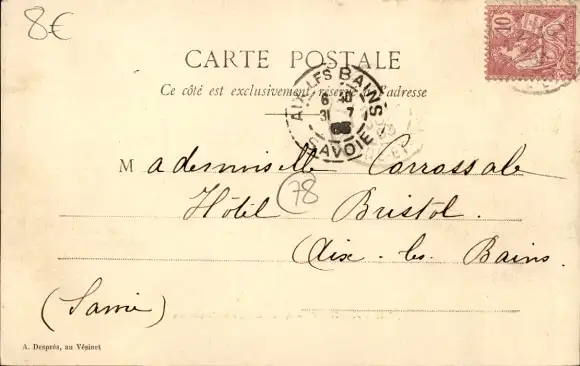 8€
10
CARTE POSTALE
Ce côté est exclusivement réservé à l'adresse
AIX-LES-BAINS
6 30
31 7
03
SAVOIE
Mademoiselle Carrossale
78
Hôtel Bristol.
Aix-les-Bains.
(Savoie)
A. Desprès, au Vésinet